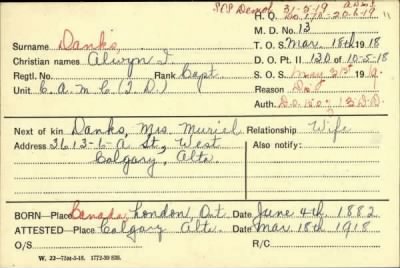 SOS Demob 31-5-19
H. Q. 20-6-19
M. D. No. 13
Surname Danks
T. O. S. Mar. 18th 1918
Christian names Alwyn T.
D. O. Pt. II 120 of 10-5-18
Regtl. No. Rank Capt.
S. O. S. May 31st 19
Unit. C. A. M. C. (T. D.)
Reason
Auth. D.O. 150 13 D.D.
Next of kin Danks, Mrs. Muriel Relationship Wife
Address 3613-6-A St., West Also notify:
Calgary, Alta
BORN—Place Canada, London, Ont Date June 4th 1882
ATTESTED—Place Calgary Alta. Date Mar. 18th 1918
O/S R/C
W. 22—75M-5-18. 1772-39 839.